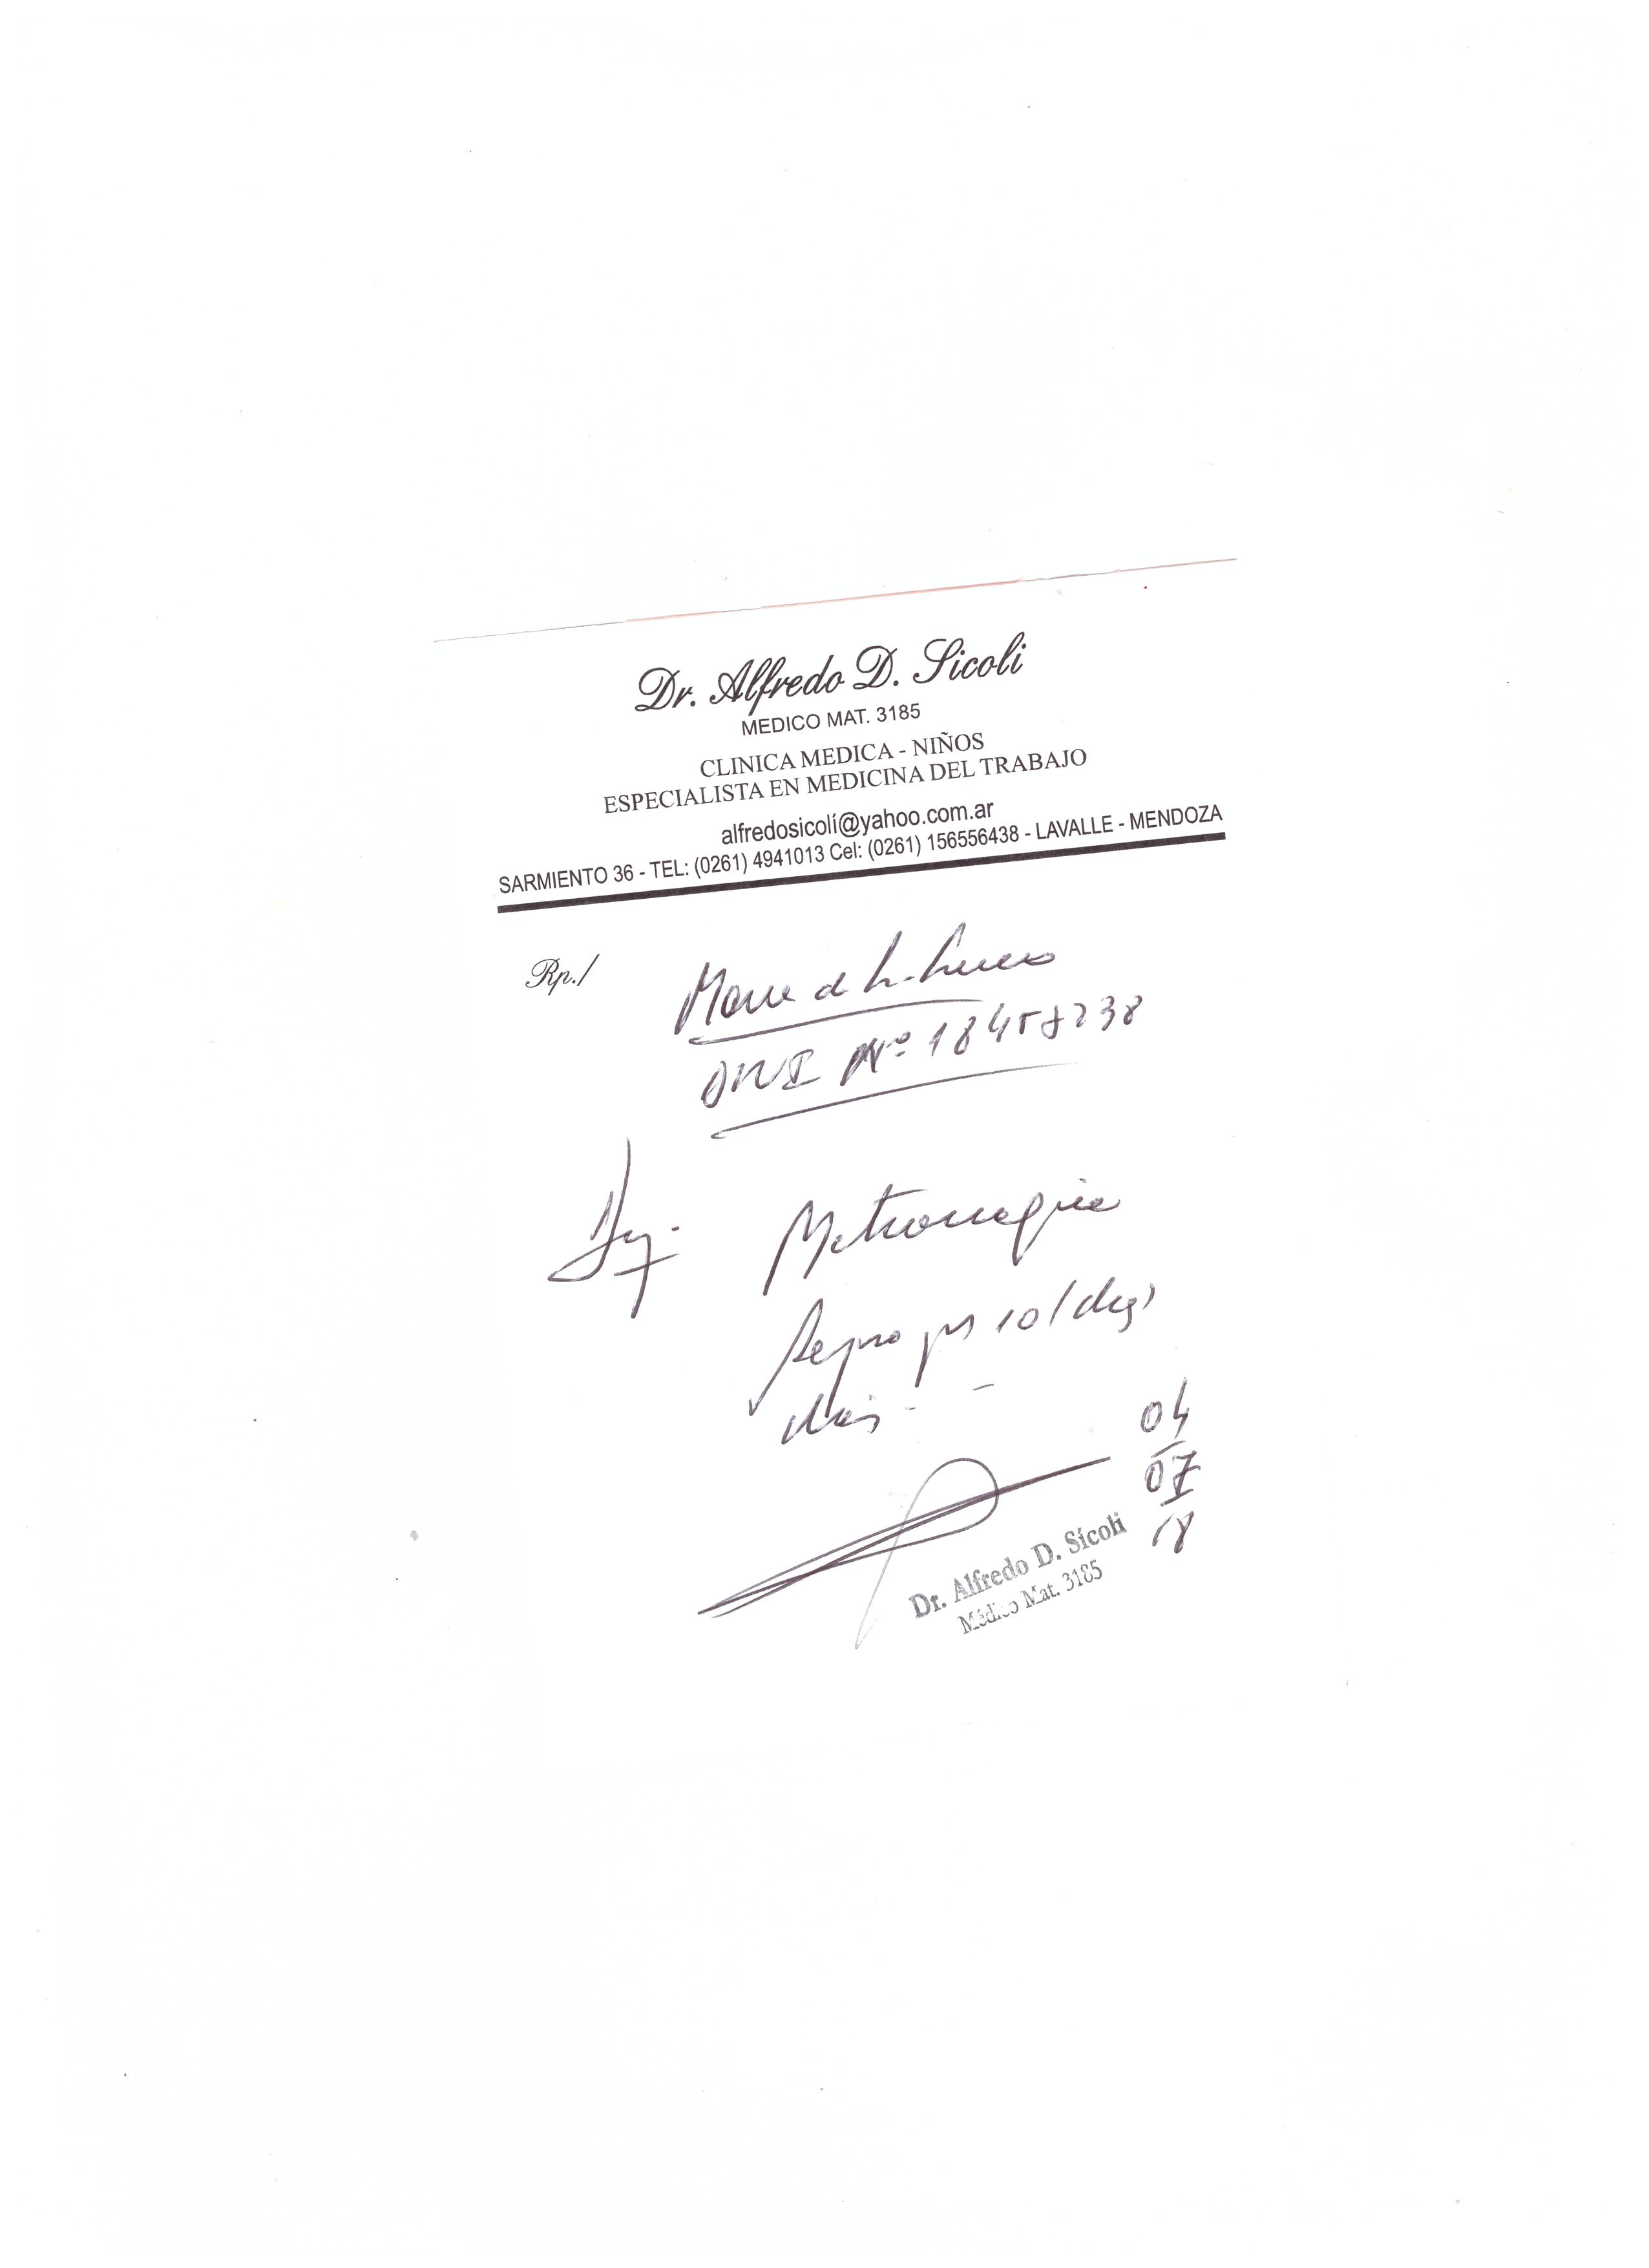 Dr. Alfredo D. Sicoli
MEDICO MAT. 3185
CLINICA MEDICA - NIÑOS
ESPECIALISTA EN MEDICINA DEL TRABAJO
alfredosicoli@yahoo.com.ar
SARMIENTO 36 - TEL: (0261) 4941013 Cel: (0261) 156556438 - LAVALLE - MENDOZA
Rp./
DNI Nº 18458238
Metrorragia
Reposo por 10/diez
días
04
07
18
Dr. Alfredo D. Sícoli
Médico Mat. 3185